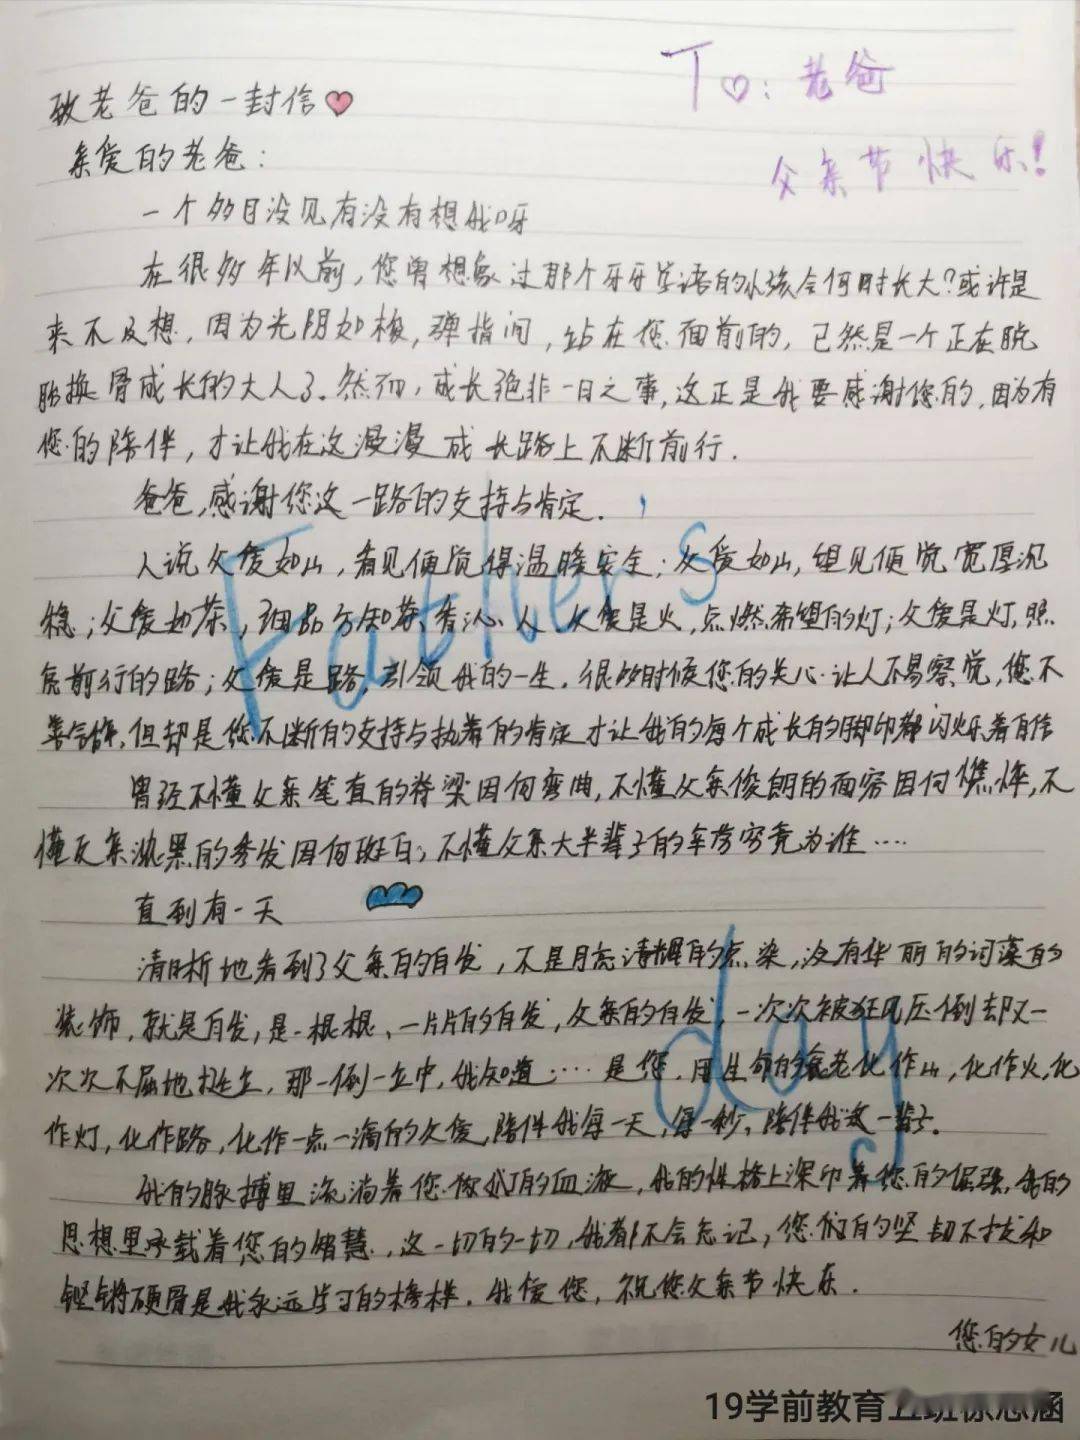 To:老爸
父亲节快乐!
致老爸的一封信
亲爱的老爸:
一个多月没见有没有想我呀
在很多年以前,您曾想象过那个牙牙学语的小孩会何时长大?或许是
来不及想,因为光阴如梭,弹指间,站在您面前的,已然是一个正在脱
胎换骨成长的大人了。然而,成长绝非一日之事,这正是我要感谢您的,因为有
您的陪伴,才让我在这漫漫成长路上不断前行.
爸爸,感谢您这一路的支持与肯定.
人说父爱如山,看见便觉得温暖安全;父爱如山,望见便觉宽厚沉
稳;父爱如茶,细品方知茶香沁人.父爱是火,点燃希望的灯;父爱是灯,照
亮前行的路;父爱是路,引领我的一生.很多时候您的关心让人不易察觉,您不
善言辞,但却是您不断的支持与执着的肯定才让我的每个成长的脚印都闪烁着自信
曾经不懂父亲笔直的脊梁因何弯曲,不懂父亲俊朗的面容因何憔悴,不
懂父亲漆黑的秀发因何斑白;不懂父亲大半辈子的辛劳究竟为谁……
直到有一天
清晰地看到了父亲的白发,不是月亮清辉的点染,没有华丽的词藻的
装饰,就是白发,是一根根、一片片的白发,父亲的白发,一次次被狂风压倒却又一
次次不屈地挺立,那一倒一立中,我知道……是您,用生命的衰老化作山,化作火,化
作灯,化作路,化作一点一滴的父爱,陪伴我每一天,每一秒,陪伴我这一辈子.
我的脉搏里流淌着您的血液,我的性格上深印着您的倔强,我的
思想里承载着您的智慧,这一切的一切,我都不会忘记,您们的坚韧不拔和
铿锵硬骨是我永远学习的榜样.我爱您,祝您父亲节快乐.
您的女儿
Father's
day
19学前教育